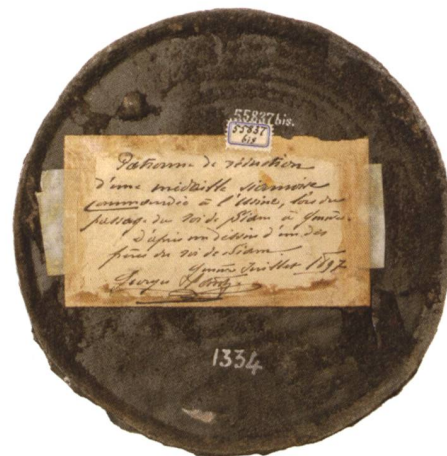 55837 bis.
55837
bis
Patronne de réduction
d'une médaille siamoise
commandée à l'Usine, lors du
passage du roi de Siam à Genève.
D'après un dessin d'un des
frères du roi de Siam
Genève Juillet 1897
Georges
1334